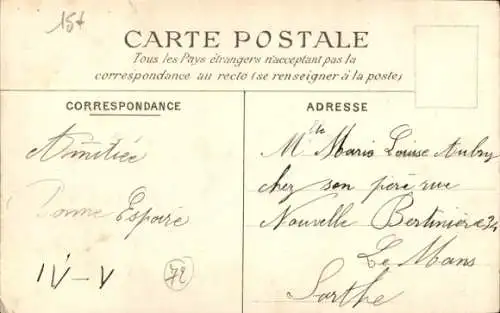 15t
CARTE POSTALE
Tous les Pays étrangers n'acceptant pas la
correspondance au recto (se renseigner à la poste)
CORRESPONDANCE
ADRESSE
Amitiée
Bonne Espare
IV-V
72
Mlle Marie Louise Aubry
chez son père rue
Nouvelle Bertinière 24
Le Mans
Sarthe